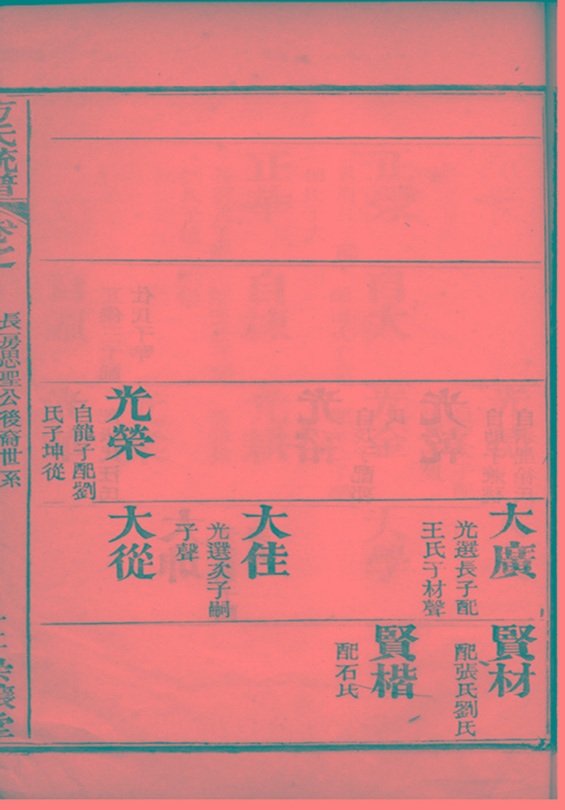 大廣
光選長子配
王氏子材聲
賢材
配張氏劉氏
賢楷
配石氏
大佳
光選次子嗣
子聲
光榮
白龍子配劉
氏子坤從
大從
氏統譜
卷之
長房思聖公後裔世系